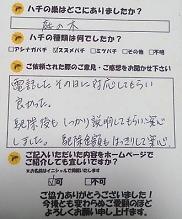 ハチの巣はどこにありましたか？
庭の木
ハチの種類は何でしたか？
□アシナガバチ ☑スズメバチ □ミツバチ □その他 □不明
ご依頼された際のご意見・ご感想をお聞かせ下さい
電話した その日に 対応してもらい
良かった。
駆除後も しっかり 説明してもらい 安心
しました。 駆除金額も はっきりして 安心
ご記入いただいた内容をホームページで
ご紹介しても宜しいですか？
※お名前はイニシャルで掲載いたします
☑可 □不可
ご協力ありがとうございました！
今後とも変わらぬご愛顧のほど
よろしくお願い申し上げます。